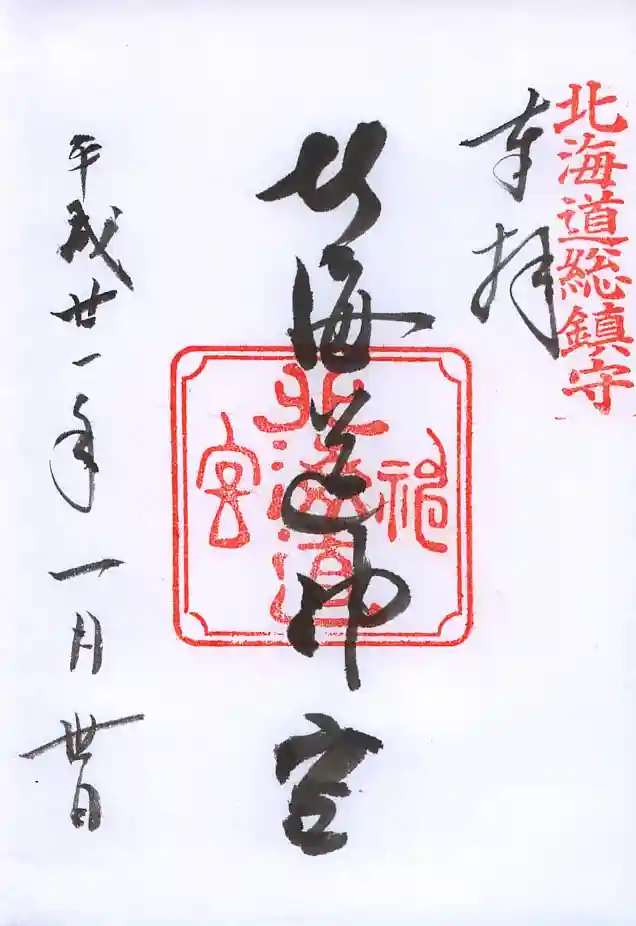 北海道総鎮守
奉拝
北海道神宮
北海道神宮
平成廿一年一月丗日